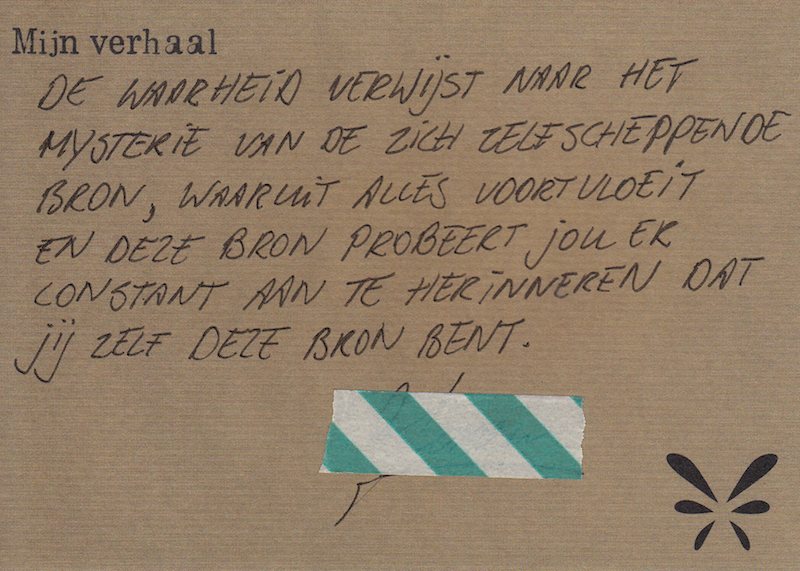 Mijn verhaal
DE WAARHEID VERWIJST NAAR HET
MYSTERIE VAN DE ZICH ZELFSCHEPPENDE
BRON, WAARUIT ALLES VOORTVLOEIT
EN DEZE BRON PROBEERT JOU ER
CONSTANT AAN TE HERINNEREN DAT
JIJ ZELF DEZE BRON BENT.